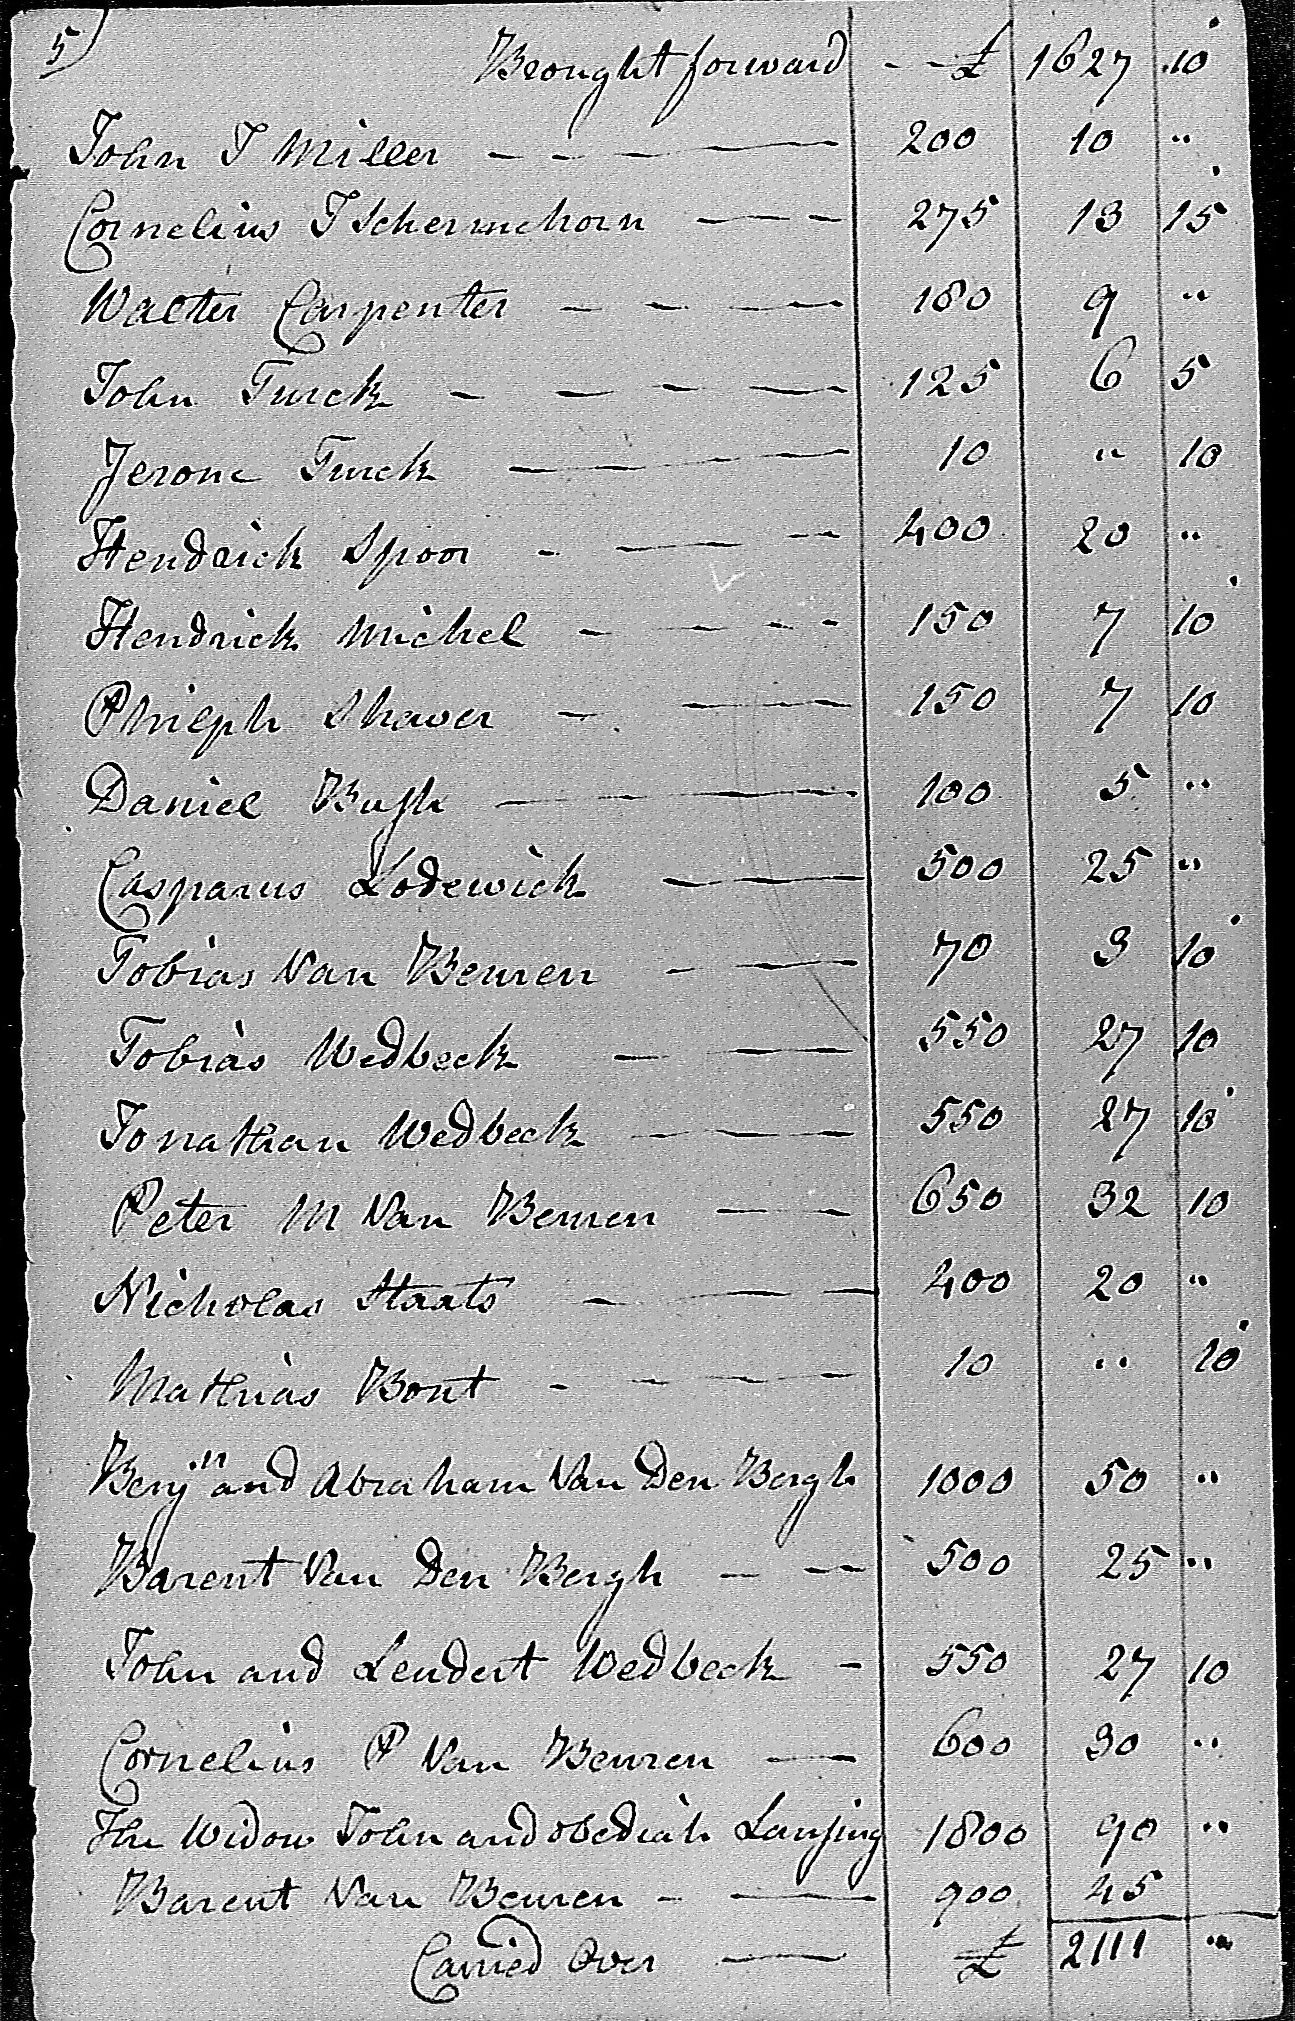 5)
Brought forward - - £ 1627 .10
John J Miller - - - - 200 10 "
Cornelius J Schermehorn - - - 275 13 15
Walter Carpenter - - - - 180 9 "
John Turck - - - - 125 6 5
Jerone Turck - - - - 10 " 10
Hendrick Spoor - - - - 400 20 "
Hendrick Michel - - - - 150 7 10
Philiph Shaver - - - 150 7 10
Daniel Bush - - - - 100 5 "
Casparus Lodewick - - - 500 25 "
Tobias Van Beuren - - - 70 3 10
Tobias Wedbeck - - - 550 27 10
Jonathan Wedbeck - - - 550 27 10
Peter M Van Beuren - - - 650 32 10
Nicholas Staats - - - - 400 20 "
Mathias Bont - - - - 10 " 10
Benjn and Abraham Van Den Bergh 1000 50 "
Barent Van Den Bergh - - - 500 25 "
John and Lendert Wedbeck - 550 27 10
Cornelius P Van Beuren - - 600 30 "
The Widow John and Obediah Lansing 1800 90 "
Barent Van Beuren - - 900 45
Carried Over - - £ 2111 "